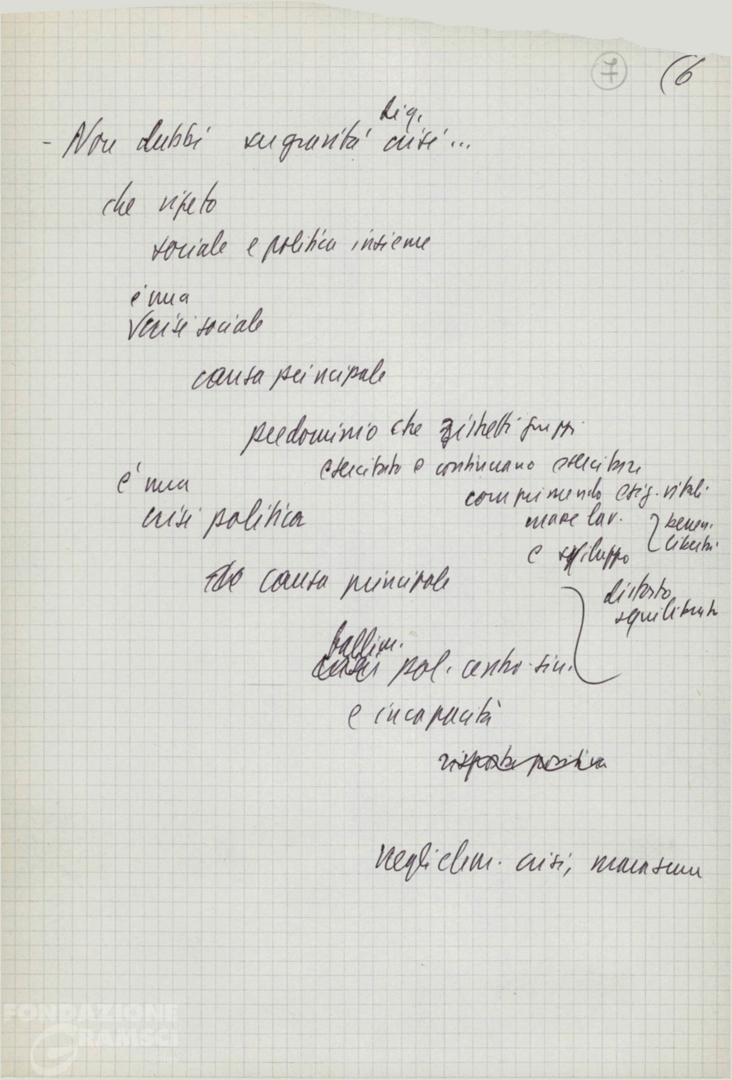 7 (6
Dig.
- Non dubbi su gravità crisi...
che ripeto
sociale e politica insieme
è una
crisi sociale
causa principale
predominio che ristretti gruppi
esercitato e continuano esercitare
comprimendo esig. vitali
è una
crisi politica
masse lav.
e sviluppo
beness.
libertà
causa principale
distorto
squilibrato
fallim.
pol. centro-sin.
e incapacità
risposte positiva
crisi, marasma
FONDAZIONE
GRAMSCI